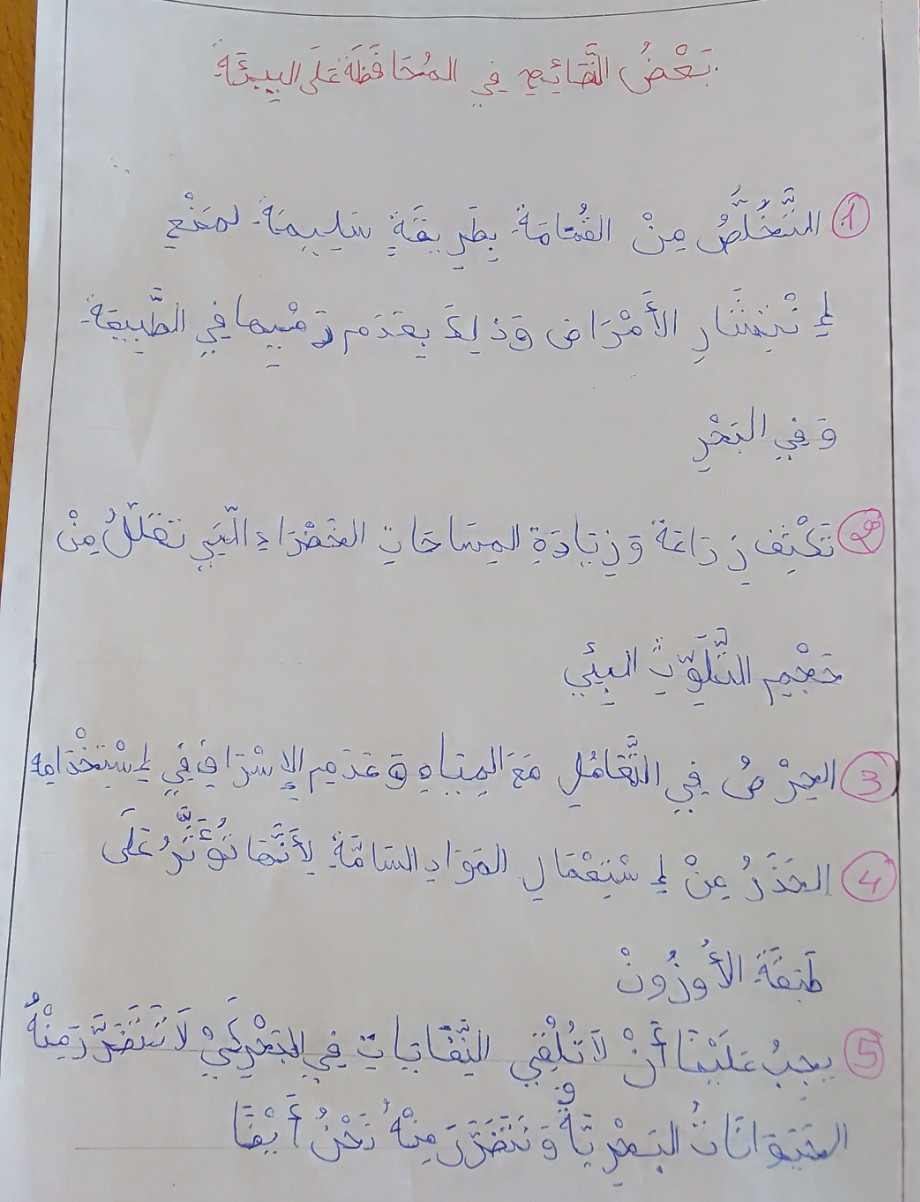 بَعْضُ النَّصَائِحِ فِي المُحَافَظَةِ عَلَى البِيئَةِ
1 التَّخَلُّصُ مِنْ القُمَامَةِ بِطَرِيقَةٍ سَلِيمَةٍ لمَنْعِ
إِنْتِشَارِ الأَمْرَاض وَذَلِكَ بِعَدَمِ رَمْيِهَا فِي الطَّبِيعَةِ
وَفِي البَحْرِ
2 تَكْثِيف زِرَاعَة وَزِيَادَةِ المِسَاحَاتِ الخَضْرَاءِ الَّتِي تُقَلِّلُ مِنْ
حَجْمِ التَّلَوُّثِ البِيئِي
3 الحِرْصُ فِي التَّعَامُلِ مَعَ المِيَاهِ وَعَدَمِ الإِسْرَافِ فِي إِسْتِخْدَامِهِ
4 الحَذَرُ مِنْ إِسْتِعْمَالِ المَوَادِ السَامَّةِ لِأَنَّهَا تُؤَثِّرُ عَلَى
طَبَقَةِ الأُوزُونْ
5 يَجِبُ عَلَيْنَا أَنْ لَا نُلْقِي النِّفَايَاتِ فِي البَحْرِ كَيْ لَا تَتَضَرَّرَ مِنْهُ
الحَيَوَانَاتُ البَحْرِيَّةُ وَنَتَضَرَّرَ مِنْهُ نَحْنُ أَيْضًا